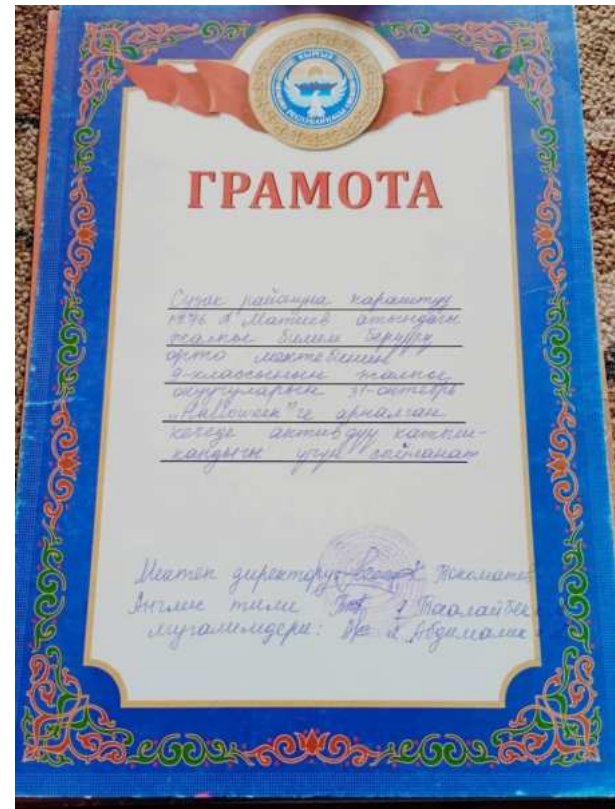 КЫРГЫЗ
РЕСПУБЛИКАСЫ
ГРАМОТА
Сузак районуна караштуу
№76 Матиев атындагы
жалпы билим берүүчү
орто мектебинин
9-классынын жалпы
окуучуларын 31-октябрь
„Halloween"ге арналган
кечеде активдүү катыш-
кандыгы үчүн сыйланат
Мектеп директору:
Англис тили Таалайбек
мугалимдери: Абдималик